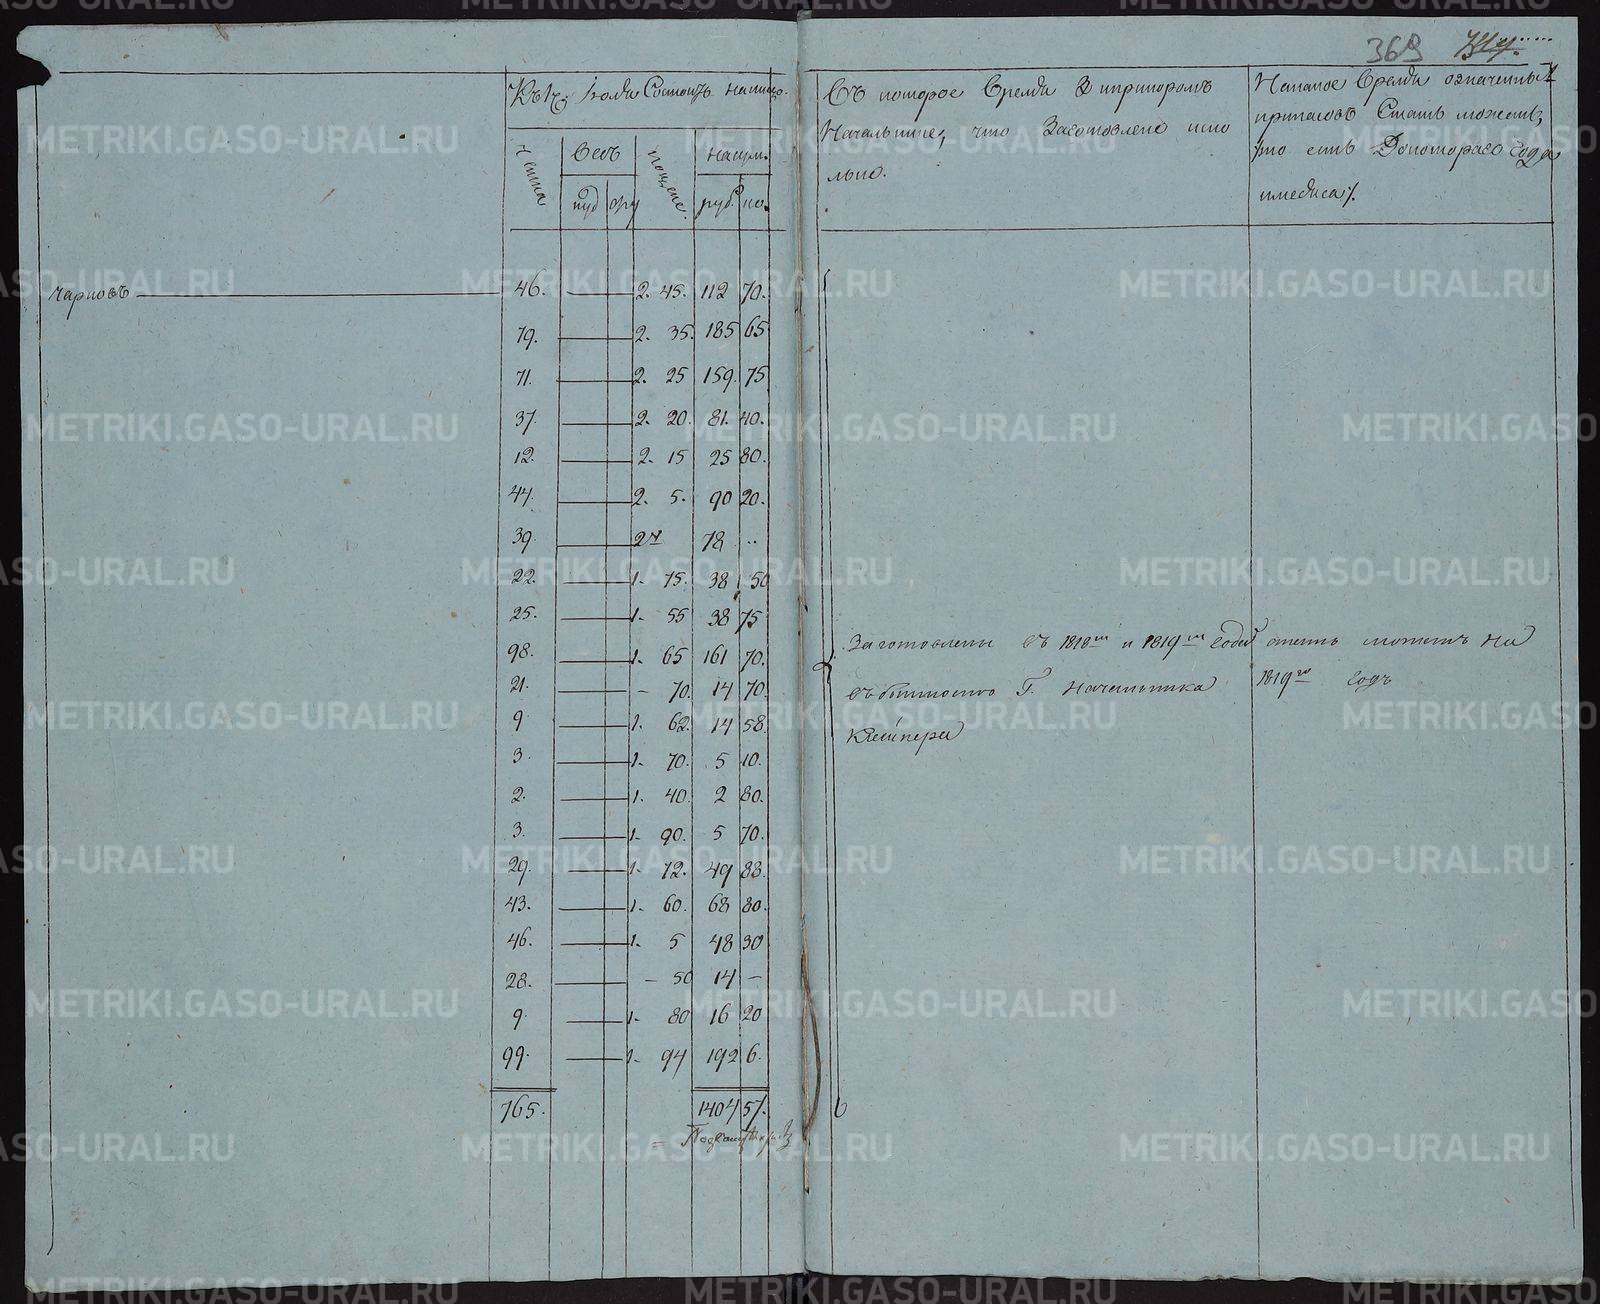 369
Къ 1му Iюля Состоитъ налицо.
Счетомъ
Весъ
по цене.
на сум.
пуд фу
руб. ко.
Въ которое время и при которомъ
Начальнике, что Заготовлено имо
льно.
На какое время означенныхъ
припасовъ Стать можетъ,
то есть Докотораго года
имесяса/.
чарковъ 46. 2. 45. 112 70.
79. 2. 35. 185 65
71. 2. 25 159 75
37. 2. 20. 81. 40.
12. 2. 15 25 80.
44. 2. 5. 90 20.
39. 2 78 ..
22. 1. 75. 38 50
25. 1. 55 38 75
98. 1. 65 161 70.
21. - 70. 14 70.
9 1. 62. 14 58
3. 1. 70. 5 10.
2. 1. 40. 2 80.
3. 1. 90. 5 70.
29. 1. 72. 49 88.
43. 1. 60. 68 80.
46. 1. 5 48 30
28. - 50 14 -
9. 1. 80 16 20
99. 1. 94 192 6.
765. 1404 57.
Заготовлены въ 1818м и 1819м годех
въ бытность Г. Начальника
Клейнера
стать можетъ на
1819й годъ
METRIKI.GASO-URAL.RU